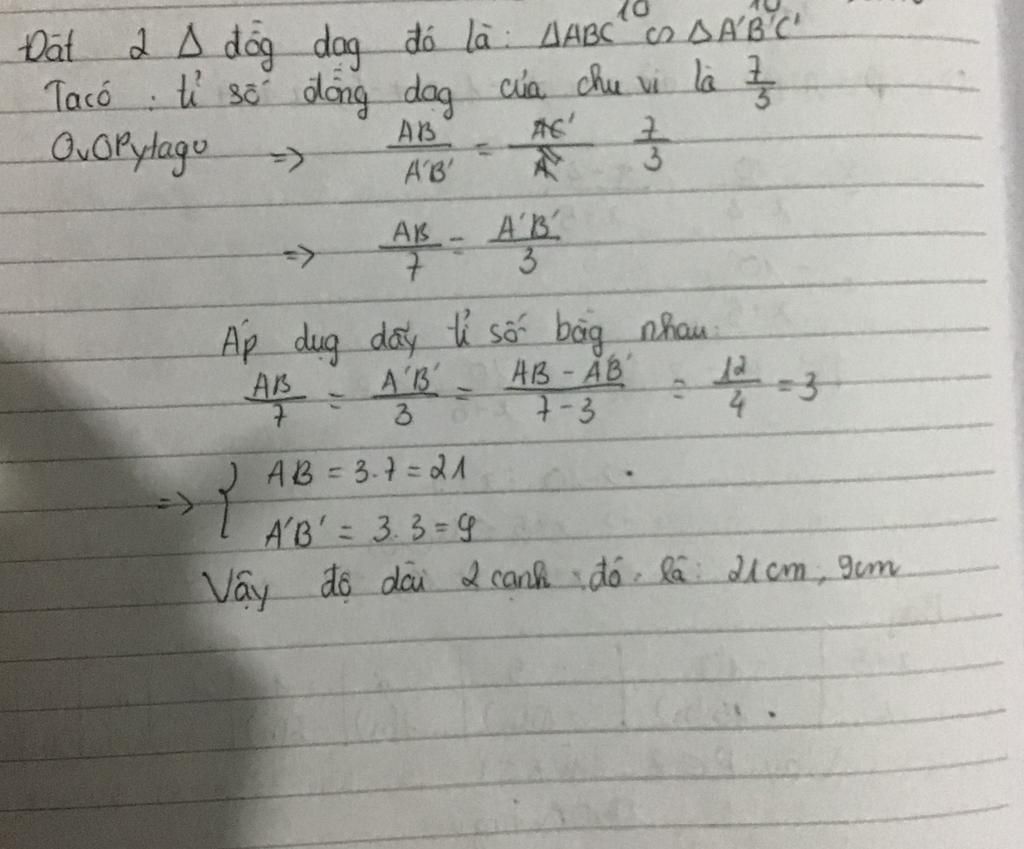 Đặt 2 Δ đồg dạg đó là: ΔABC ∽ ΔA'B'C'
Ta có: tỉ số đồng dạg của chu vi là 7/3
OvOPytago => AB/A'B' = 7/3
=> AB/7 = A'B'/3
Áp dụg dãy tỉ số bằg nhau:
AB/7 = A'B'/3 = AB - A'B'/7 - 3 = 12/4 = 3
=> { AB = 3.7 = 21
A'B' = 3.3 = 9
Vậy độ dài 2 cạnh đó là: 21cm, 9cm